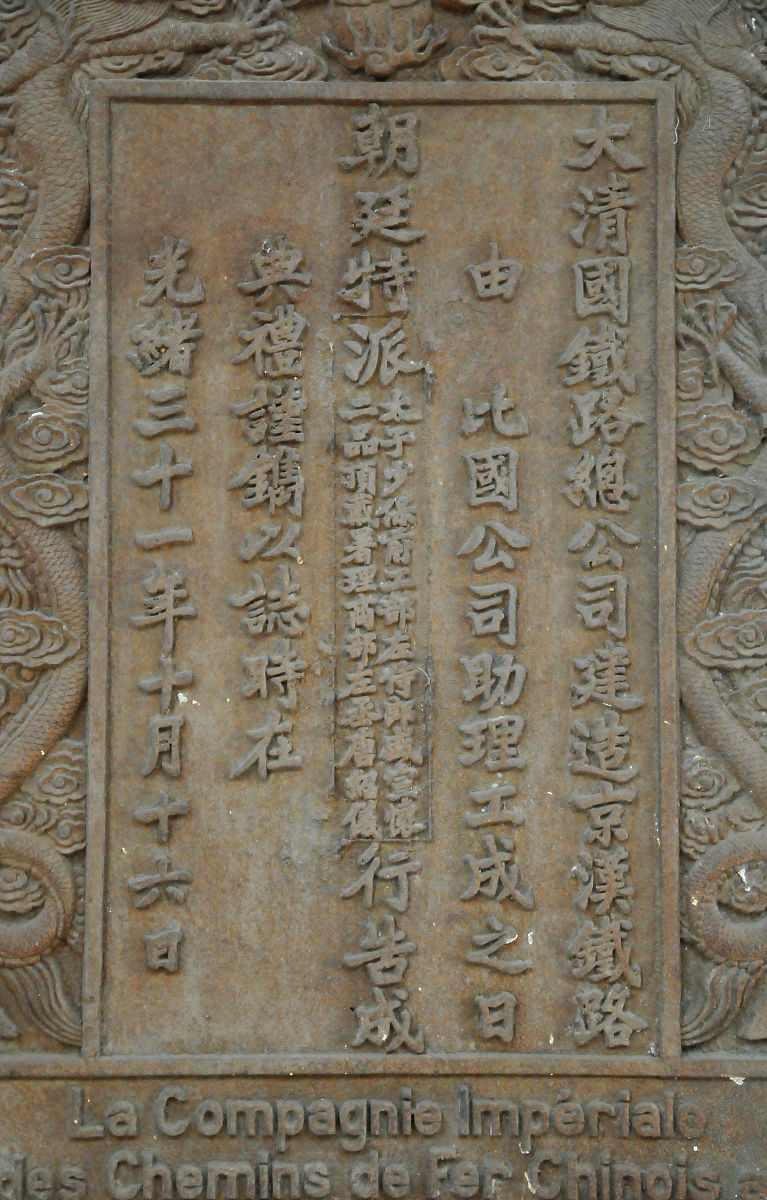 大清國鐵路總公司建造京漢鐵路
由 比國公司助理工成之日
朝廷特派
太子少保前工部左侍郎盛宣懷
二品頂戴署理商部左丞唐紹儀
行告成
典禮謹鐫以誌時在
光緒三十一年十月十六日
La Compagnie Impériale
des Chemins de Fer Chinois a